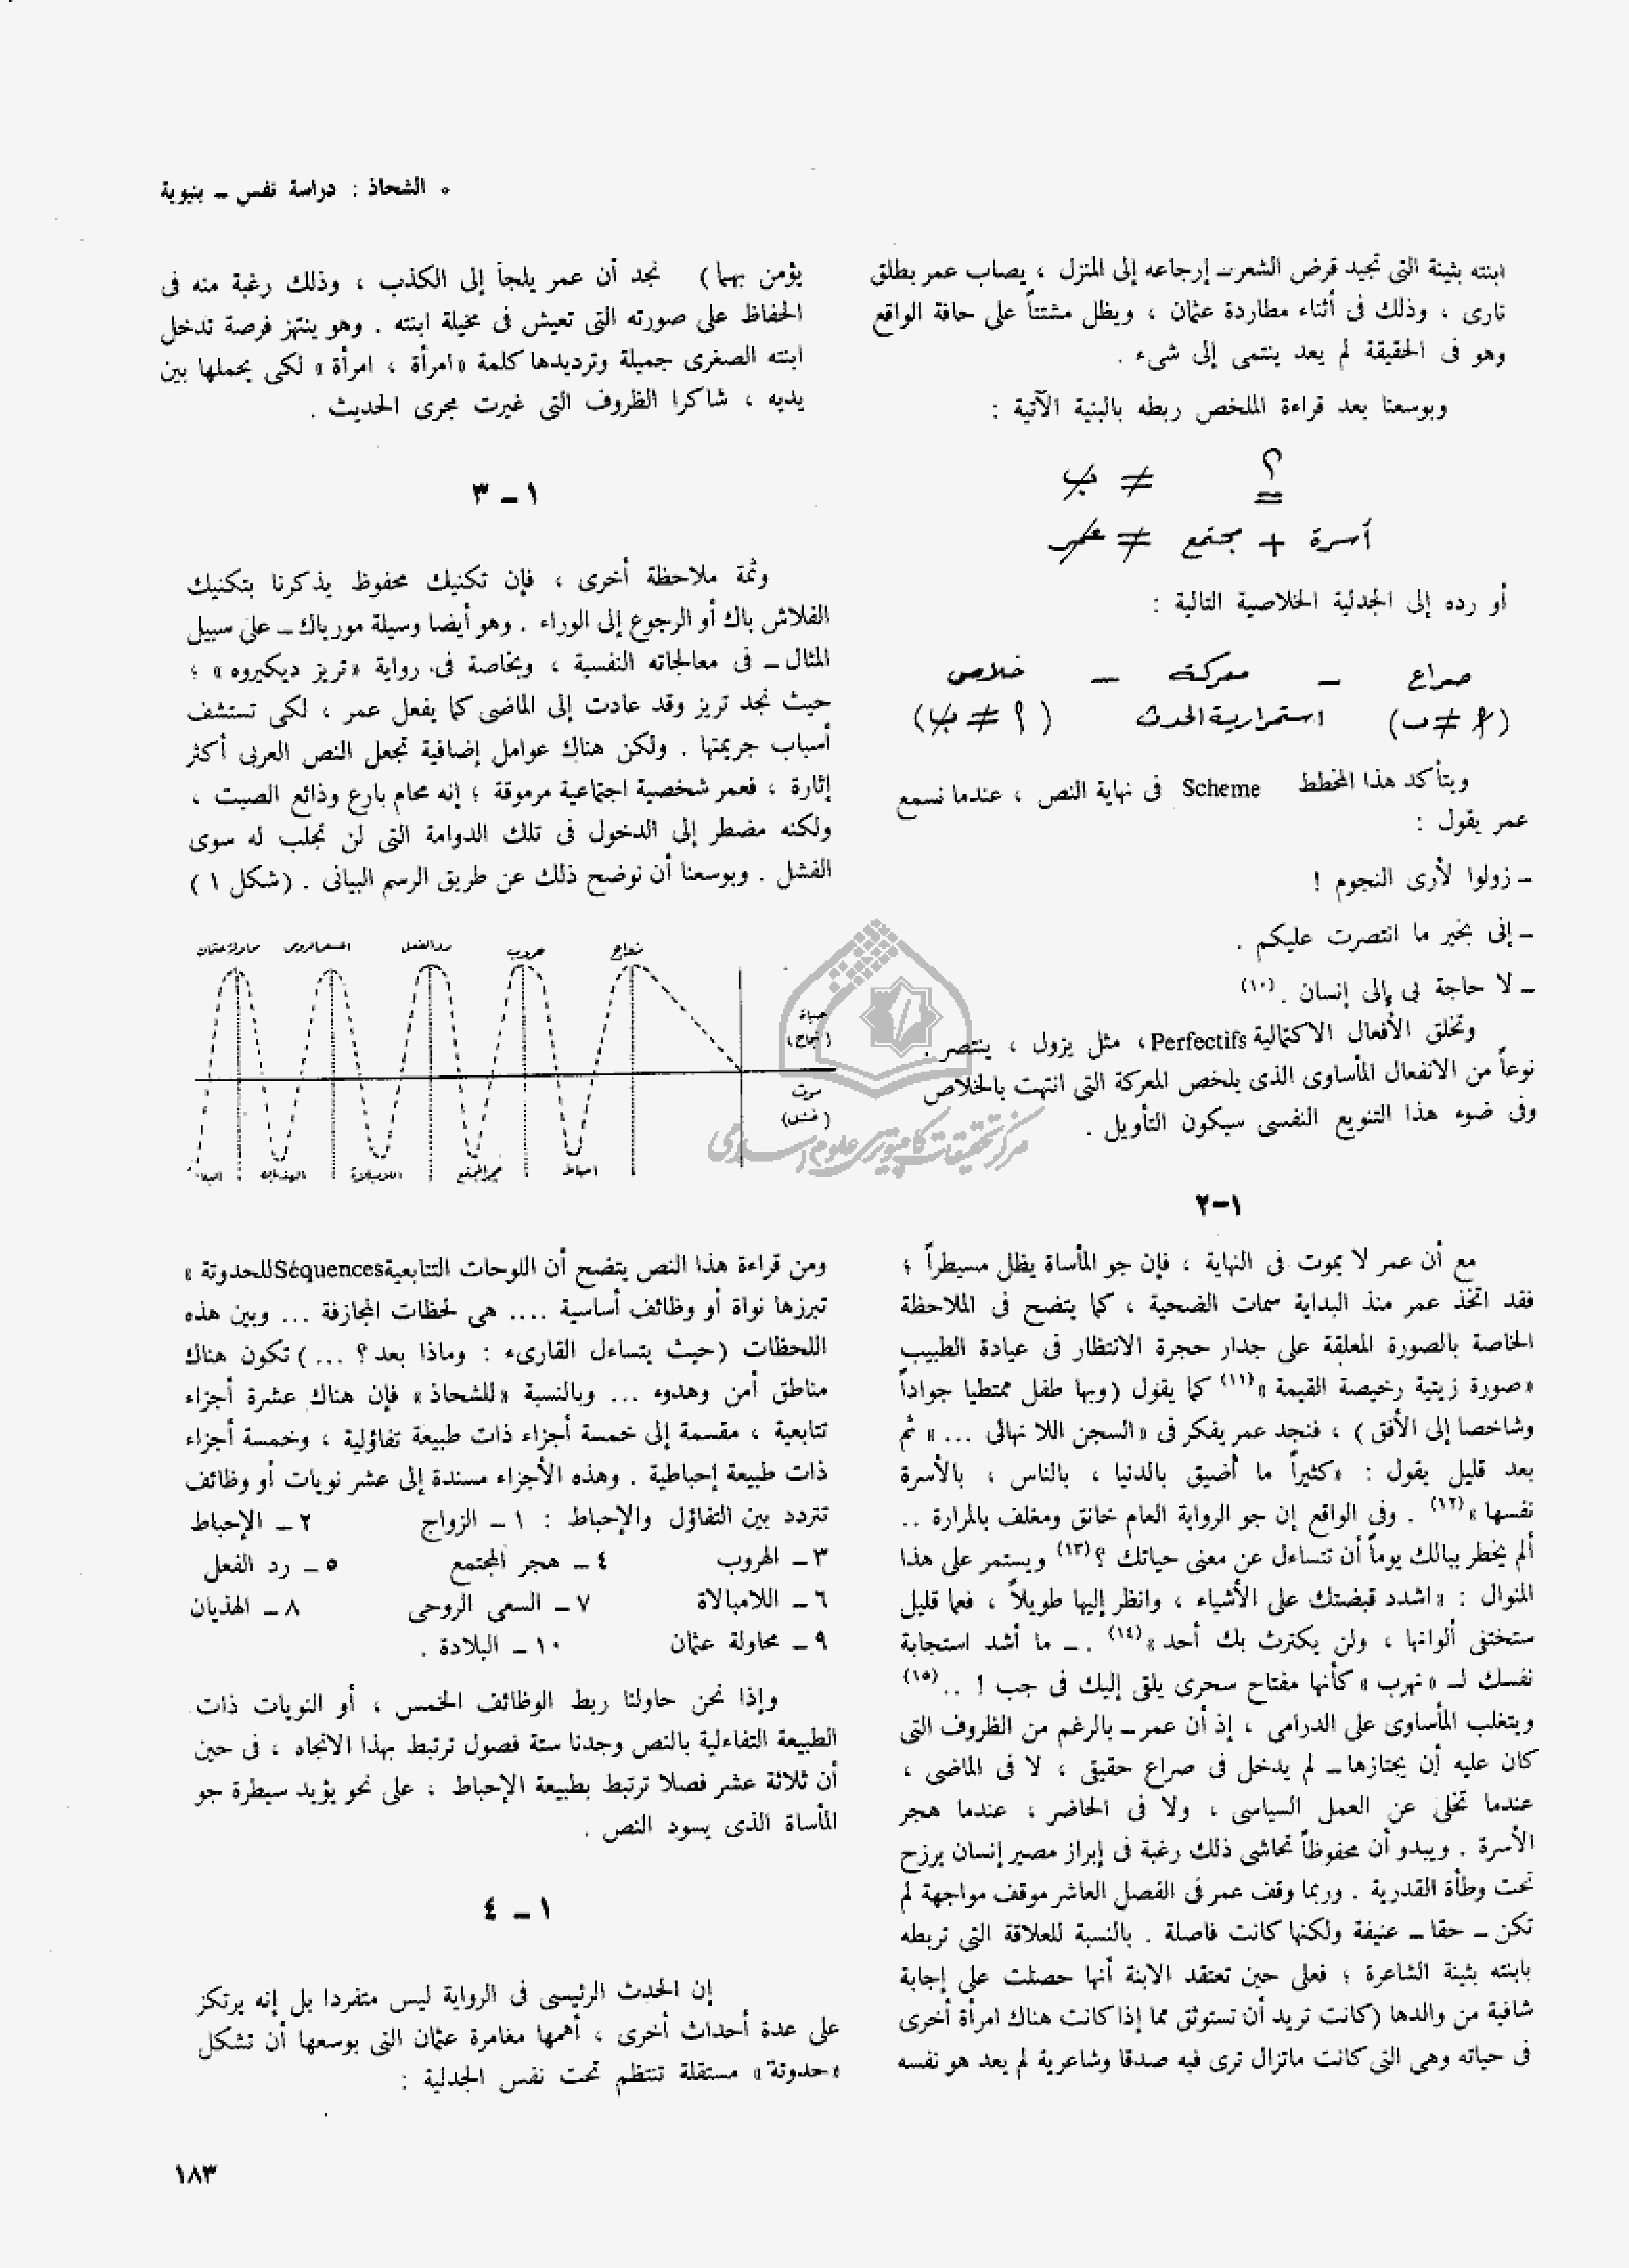 ٠ الشحاذ : دراسة نفس ــ بنيوية
ابنته بثينة التى تجيد قرض الشعر ــ إرجاعه إلى المنزل ، يصاب عمر بطلق
نارى ، وذلك فى أثناء مطاردة عثمان ، ويظل مشتتاً على حافة الواقع
وهو فى الحقيقة لم يعد ينتمى إلى شىء .
وبوسعنا بعد قراءة الملخص ربطه بالبنية الآتية :
؟ ≠ ب
=
أسرة + مجتمع ≠ عمر
أو رده إلى الجدلية الخلاصية التالية :
صراع ــ معركة ــ خلاص
(أ ≠ ب) استمرارية الحدث (أ ≠ ب)
ويتأكد هذا المخطط Scheme فى نهاية النص ، عندما نسمع
عمر يقول :
ــ زولوا لأرى النجوم !
ــ إنى بخير ما انتصرت عليكم .
ــ لا حاجة بى إلى إنسان . (١٠)
وتخلق الأفعال الاكتمالية Perfectifs ، مثل يزول ، ينتصر .
نوعاً من الانفعال المأساوى الذى يلخص المعركة التى انتهت بالخلاص
وفى ضوء هذا التنويع النفسى سيكون التأويل .
١–٢
مع أن عمر لا يموت فى النهاية ، فإن جو المأساة يظل مسيطراً ؛
فقد اتخذ عمر منذ البداية سمات الضحية ، كما يتضح فى الملاحظة
الخاصة بالصورة المعلقة على جدار حجرة الانتظار فى عيادة الطبيب
«صورة زيتية رخيصة القيمة »(١١) كما يقول (وبها طفل ممتطيا جواداً
وشاخصا إلى الأفق ) ، فنجد عمر يفكر فى «السجن اللا نهائى ... » ثم
بعد قليل يقول : «كثيراً ما أضيق بالدنيا ، بالناس ، بالأسرة
نفسها »(١٢) . وفى الواقع إن جو الرواية العام خانق ومغلف بالمرارة ..
ألم يخطر ببالك يوماً أن تتساءل عن معنى حياتك ؟(١٣) ويستمر على هذا
المنوال : «اشدد قبضتك على الأشياء ، وانظر إليها طويلاً ، فعما قليل
ستختفى ألوانها ، ولن يكترث بك أحد »(١٤) . ــ ما أشد استجابة
نفسك لـ «تهرب » كأنها مفتاح سحرى يلقى إليك فى جب ! .. (١٥)
ويتغلب المأساوى على الدرامى ، إذ أن عمر ــ بالرغم من الظروف التى
كان عليه أن يجتازها ــ لم يدخل فى صراع حقيقى ، لا فى الماضى ،
عندما تخلى عن العمل السياسى ، ولا فى الحاضر ، عندما هجر
الأسرة . ويبدو أن محفوظاً تحاشى ذلك رغبة فى إبراز مصير إنسان يرزح
تحت وطأة القدرية . وربما وقف عمر فى الفصل العاشر موقف مواجهة لم
تكن ــ حقا ــ عنيفة ولكنها كانت فاصلة . بالنسبة للعلاقة التى تربطه
بابنته بثينة الشاعرة ؛ فعلى حين تعتقد الابنة أنها حصلت على إجابة
شافية من والدها (كانت تريد أن تستوثق مما إذا كانت هناك امرأة أخرى
فى حياته وهى التى كانت ماتزال ترى فيه صدقا وشاعرية لم يعد هو نفسه
يؤمن بهما ) نجد أن عمر يلجأ إلى الكذب ، وذلك رغبة منه فى
الحفاظ على صورته التى تعيش فى مخيلة ابنته . وهو ينتهز فرصة تدخل
ابنته الصغرى جميلة وترديدها كلمة «امرأة ، امرأة » لكى يحملها بين
يديه ، شاكرا الظروف التى غيرت مجرى الحديث .
١ – ٣
وثمة ملاحظة أخرى ، فإن تكنيك محفوظ يذكرنا بتكنيك
الفلاش باك أو الرجوع إلى الوراء . وهو أيضا وسيلة مورياك ــ على سبيل
المثال ــ فى معالجاته النفسية ، وبخاصة فى رواية «تريز ديكيروه » ؛
حيث نجد تريز وقد عادت إلى الماضى كما يفعل عمر ، لكى تستشف
أسباب جريمتها . ولكن هناك عوامل إضافية تجعل النص العربى أكثر
إثارة ، فعمر شخصية اجتماعية مرموقة ؛ إنه محام بارع وذائع الصيت ،
ولكنه مضطر إلى الدخول فى تلك الدوامة التى لن تجلب له سوى
الفشل . وبوسعنا أن نوضح ذلك عن طريق الرسم البيانى . (شكل ١ )
زواج هروب رد الفعل السعى الروحى محاولة عثمان
حياة
(نجاح)
موت
(فشل)
احباط هجر المجتمع اللامبالاة الهذيان البلادة
مركز تحقیقات کامپیوتری علوم اسلامی
ومن قراءة هذا النص يتضح أن اللوحات التتابعية Séquences للحدوتة »
تبرزها نواة أو وظائف أساسية .... هى لحظات المجازفة ... وبين هذه
اللحظات (حيث يتساءل القارىء : وماذا بعد ؟ ... ) تكون هناك
مناطق أمن وهدوء ... وبالنسبة «للشحاذ » فإن هناك عشرة أجزاء
تتابعية ، مقسمة إلى خمسة أجزاء ذات طبيعة تفاؤلية ، وخمسة أجزاء
ذات طبيعة إحباطية . وهذه الأجزاء مسندة إلى عشر نويات أو وظائف
تتردد بين التفاؤل والإحباط : ١ ــ الزواج ٢ ــ الإحباط
٣ ــ الهروب ٤ ــ هجر المجتمع ٥ ــ رد الفعل
٦ ــ اللامبالاة ٧ ــ السعى الروحى ٨ ــ الهذيان
٩ ــ محاولة عثمان ١٠ ــ البلادة .
وإذا نحن حاولنا ربط الوظائف الخمس ، أو النويات ذات
الطبيعة التفاءلية بالنص وجدنا ستة فصول ترتبط بهذا الاتجاه ، فى حين
أن ثلاثة عشر فصلا ترتبط بطبيعة الإحباط ، على نحو يؤيد سيطرة جو
المأساة الذى يسود النص .
١ – ٤
إن الحدث الرئيسى فى الرواية ليس متفردا بل إنه يرتكز
على عدة أحداث أخرى ، أهمها مغامرة عثمان التى بوسعها أن تشكل
«حدوتة » مستقلة تنتظم تحت نفس الجدلية :
١٨٣